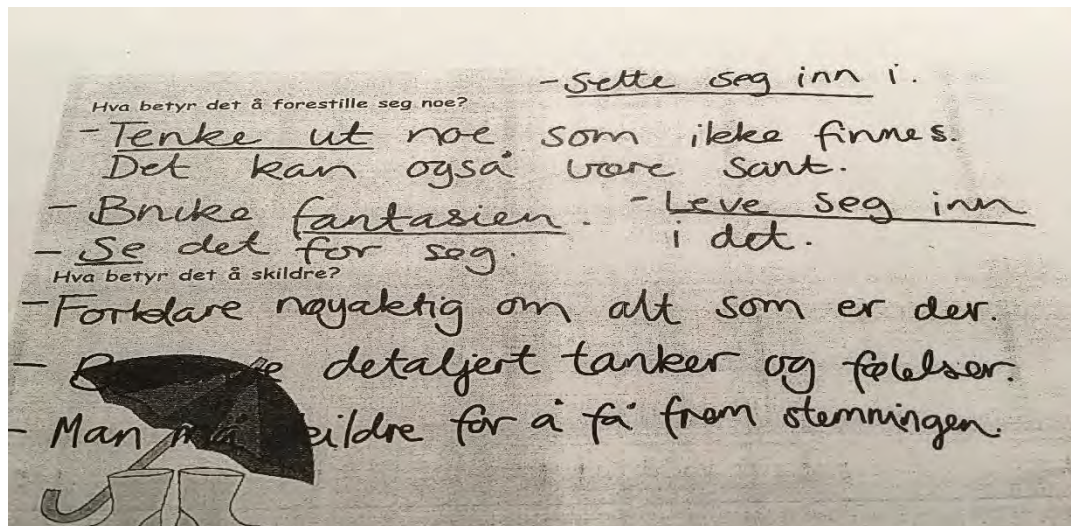 - Sette seg inn i.
Hva betyr det å forestille seg noe?
- Tenke ut noe som ikke finnes.
Det kan også være sant.
- Bruke fantasien. - Leve seg inn
i det.
- Se det for seg.
Hva betyr det å skildre?
- Forklare nøyaktig om alt som er der.
- detaljert tanker og følelser.
- Man må skildre for å få frem stemningen.